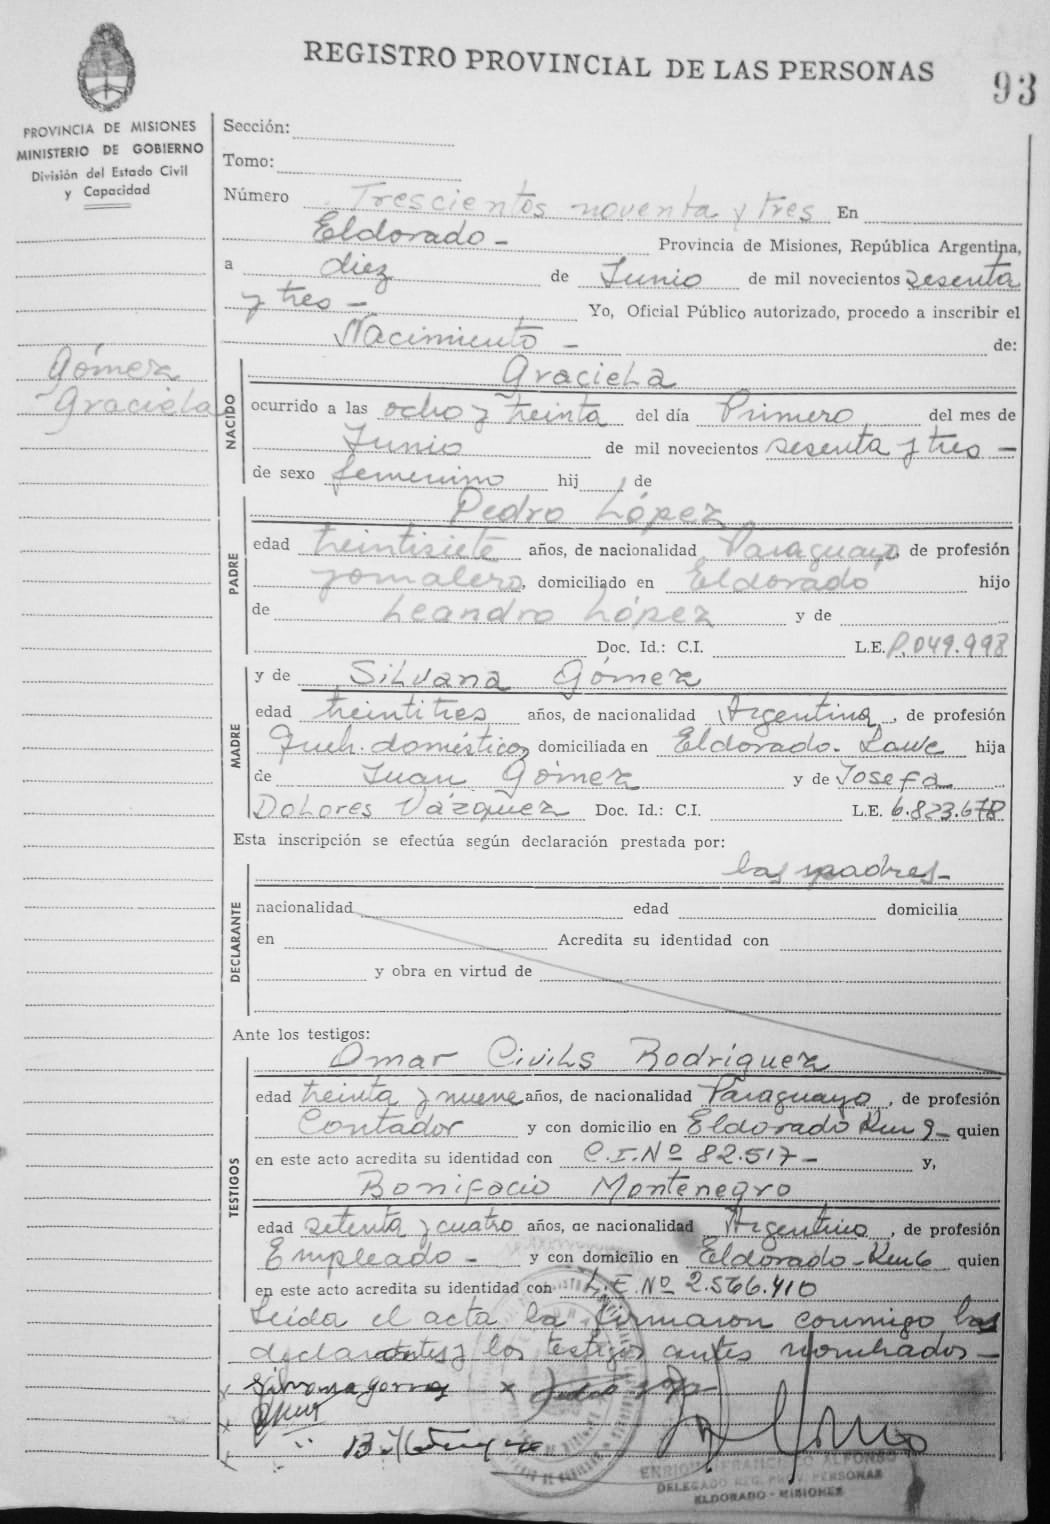 REGISTRO PROVINCIAL DE LAS PERSONAS
93
PROVINCIA DE MISIONES
MINISTERIO DE GOBIERNO
División del Estado Civil
y Capacidad
Gómez
Graciela
Sección:
Tomo:
Número Trescientos noventa y tres En
Eldorado - Provincia de Misiones, República Argentina,
a diez de Junio de mil novecientos sesenta
y tres - Yo, Oficial Público autorizado, procedo a inscribir el
Nacimiento - de:
NACIDO
Graciela
ocurrido a las ocho y treinta del día Primero del mes de
Junio de mil novecientos sesenta y tres -
de sexo femenino hij de
PADRE
Pedro López
edad treintisiete años, de nacionalidad Paraguayo, de profesión
jornalero, domiciliado en Eldorado hijo
de Leandro López y de
Doc. Id.: C.I. L.E. P.049.998
MADRE
y de Silvana Gómez
edad treintitres años, de nacionalidad Argentina, de profesión
Queh. domésticos, domiciliada en Eldorado. hija
de Juan Gómez y de Josefa
Dolores Vázquez Doc. Id.: C.I. L.E. 6.823.678
Esta inscripción se efectúa según declaración prestada por:
los padres-
DECLARANTE
nacionalidad edad domicilia
en Acredita su identidad con
y obra en virtud de
Ante los testigos:
TESTIGOS
Omar Civils Rodríguez
edad treinta y nueve años, de nacionalidad Paraguayo, de profesión
Contador y con domicilio en Eldorado Km 9- quien
en este acto acredita su identidad con C.I.Nº 82.517- y,
Bonifacio Montenegro
edad setenta y cuatro años, de nacionalidad Argentino, de profesión
Empleado - y con domicilio en Eldorado-Km 6 quien
en este acto acredita su identidad con L.E. Nº 2.566.410
Leida el acta la firmaron conmigo los
declarantes y los testigos antes nombrados-
Silvana gomez x
ENRIQUE FRANCISCO ALFONSO
DELEGADO REG. PROV. PERSONAS
ELDORADO - MISIONES